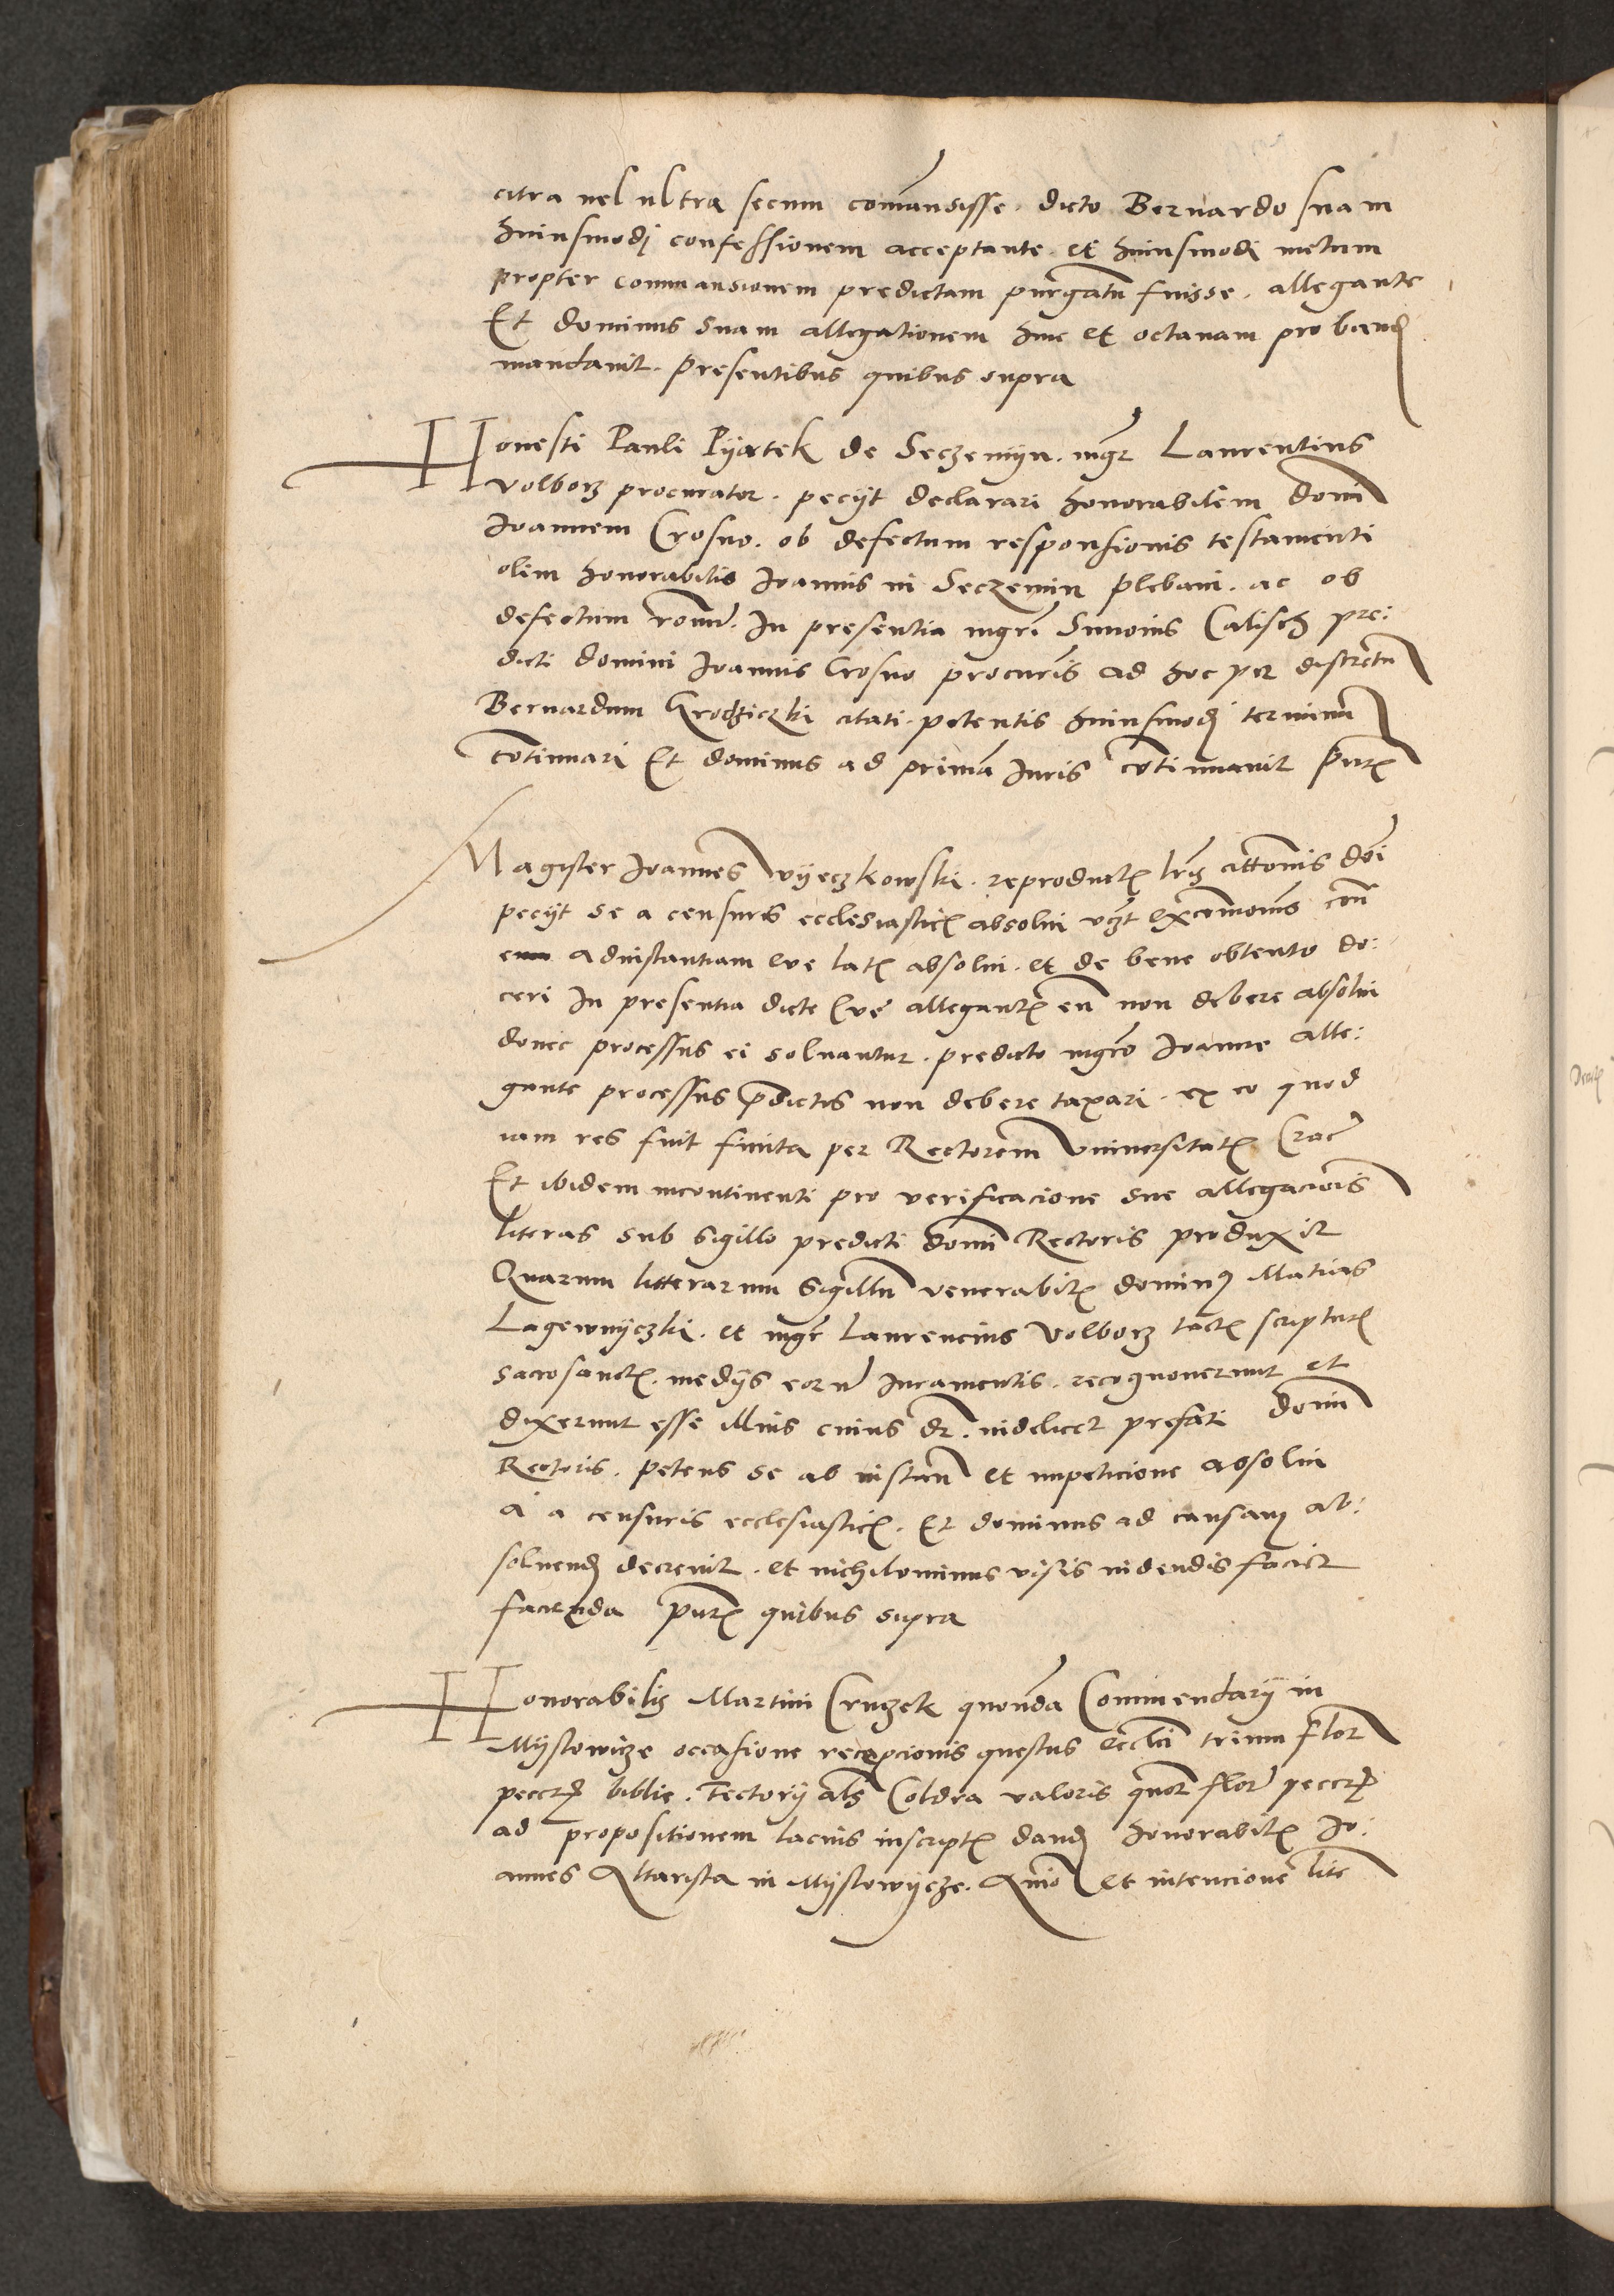 citra uel ultra secum comansisse. dicto Bernardo suam
huiusmodi confessionem acceptante. et huiusmodi metum
propter commansionem predictam purgatu fuisse. allegante
Et dominus suam allegationem hinc et octauam proband
mandauit. presentibus quibus supra
Honesti Pauli Pyatek de Seczemyn. mgr Laurentius
Volborz procurator. pecyt declarari honorabilem domi
Joannem Crosno. ob defectum responsionis testamenti
olim honorabilis Joannis in Seczemin plebani. ac ob
defectum In presentia mgri Simonis Calisch pre:
dicti domini Joannis Crosno procuris ad hoc per discretu
Bernardum Grodziczki citati. petentis huiusmodi terminu
cotinuari Et dominus ad prima Juris cotinuauit pnt
Magister Joannes Wyeczkowski. reproduct lris cittonis doi
pecyt se a censuris ecclesiastic absolui vzt excomonis con
eum adinstantiam eve lat absolui. et de bene obtento do:
ceri In presentia dicte Eve allegant eu non debere absolui
donec processus ei soluantur. predicto mgro Joanne alle:
gante processus pdictos non debere taxari. ex eo quod
iam res fuit finita per Rectorem Vniuersitat Crac
Et ibidem incontinenti pro verificacione sue allegacois
literas sub sigillo predicti domi Rectoris produxit
Quarum litterarum sigillu venerabil dominus Matias
Lagewnyczki. et mgr Laurencius Volborz tact scriptur
sacrosanct. medys eoru Juramentis. recognouerunt et
dixerunt esse illius cuius dr. uidelicet prefati domi
Rectoris. petens se ab instan et impeticione absolui
a a censuris ecclesiastic. Et dominus ad causam ab:
soluend decreuit. et nichilominus visis uidendis faciet
facienda pnt quibus supra
Honorabilis Martini Cruzek quonda Commendary in
Myslowicze occasione recepcionis questus eccli trium flor
peccr biblie. Tectory als Coldra valoris quor flor peccr
ad propositionem lacius inscript dand honorabil Jo:
annes Altarista in Myslowycze. Anio et intencione lite